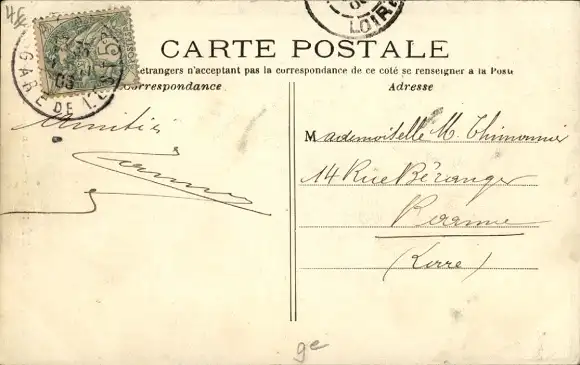 4€
GARE DE
LOIRE
CARTE POSTALE
étrangers n'acceptant pas la correspondance de ce coté se renseigner à la Poste
Correspondance
Adresse
Amitiés
Mademoiselle M. Thimonnier
14 Rue Béranger
Roanne
(Loire)
ge